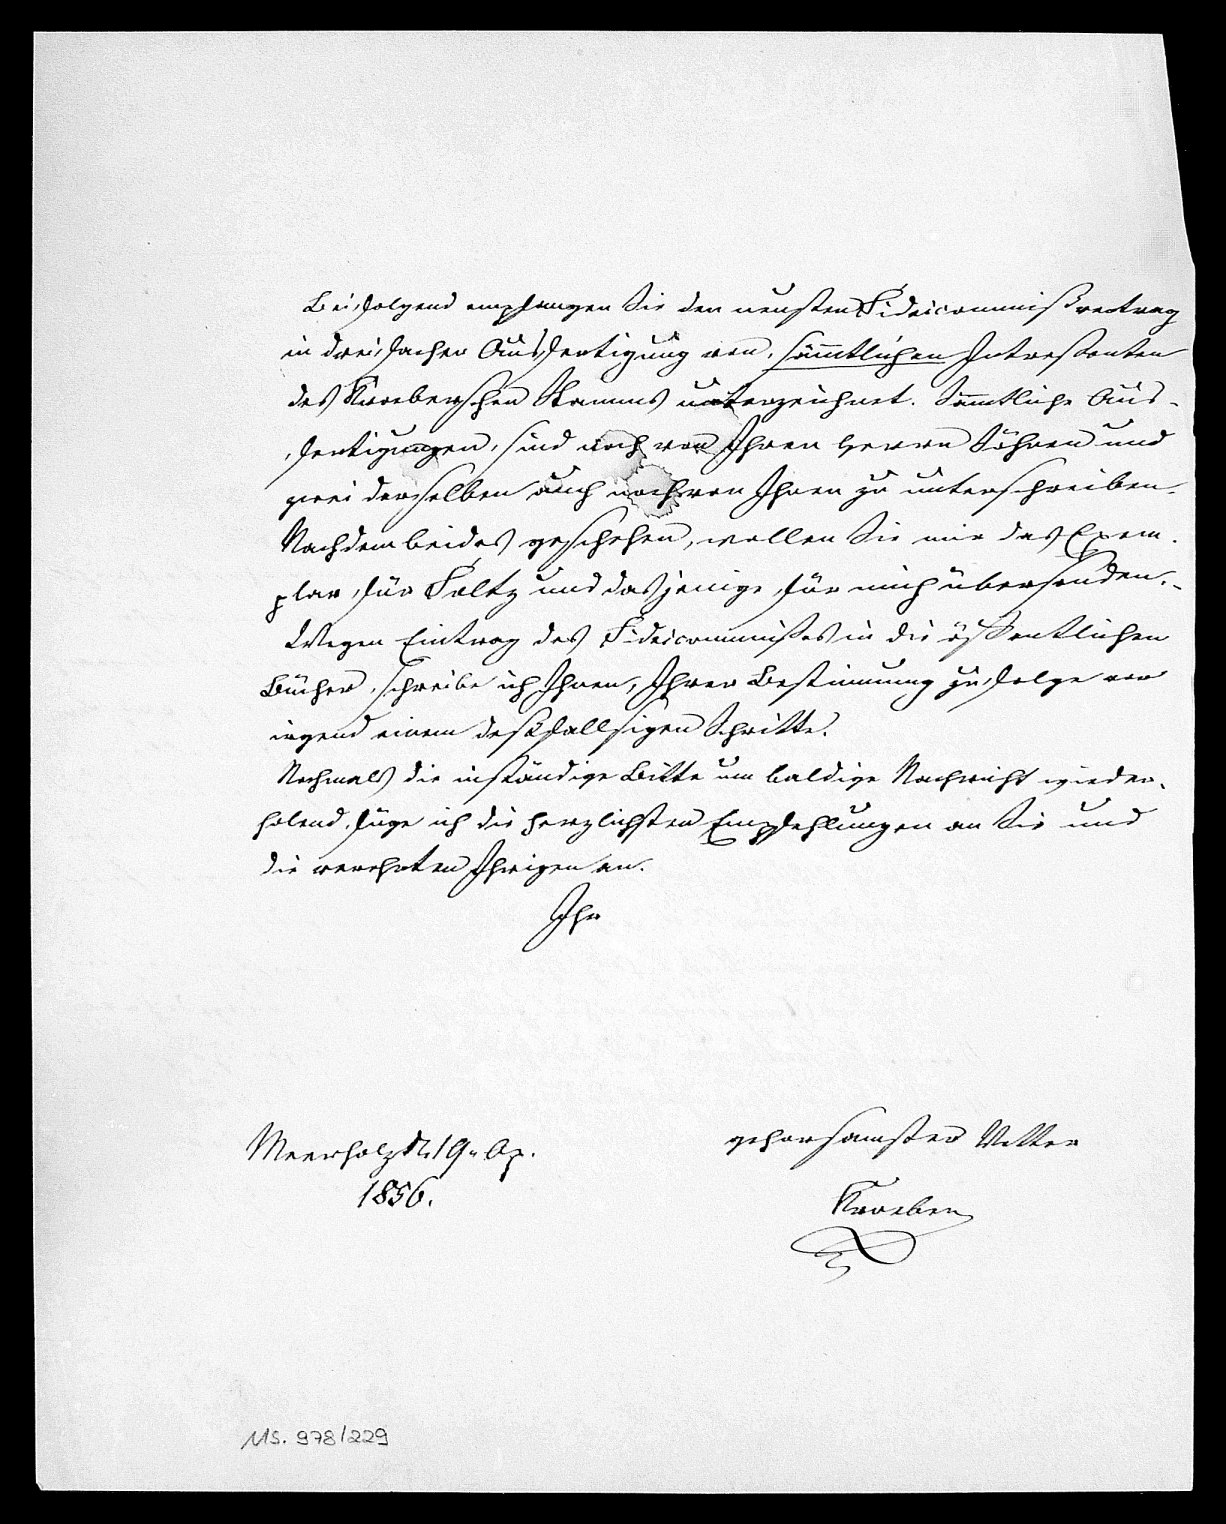 Beifolgend empfangen Sie den neusten Fideicommißvertrag
in dreifacher Ausfertigung von sämmtlichen Intressenten
des Kroeberschen Stamms unterzeichnet. Sämmtliche Aus-
fertigungen sind noch von Ihren Herrn Söhnen und
zwei derselben auch noch von Ihnen zu unterschreiben.
Nachdem beides geschehen, wollen Sie mir das Exem-
plar für Faltz und dasjenige für mich übersenden.-
Wegen Eintrag des Fideicommisses in die öffentlichen
Bücher schreibe ich Ihnen, Ihrer Bestimmung zu Folge vor
irgend einem desfallsigen Schritte.
Nochmals die inständige Bitte um baldige Nachricht wieder-
holend füge ich die herzlichsten Empfehlungen an Sie und
die verehrten Ihrigen an.
Ihr
gehorsamster Vetter
Kroeber
Meerholz d. 19. Ap.
1856.
MS. 978/229